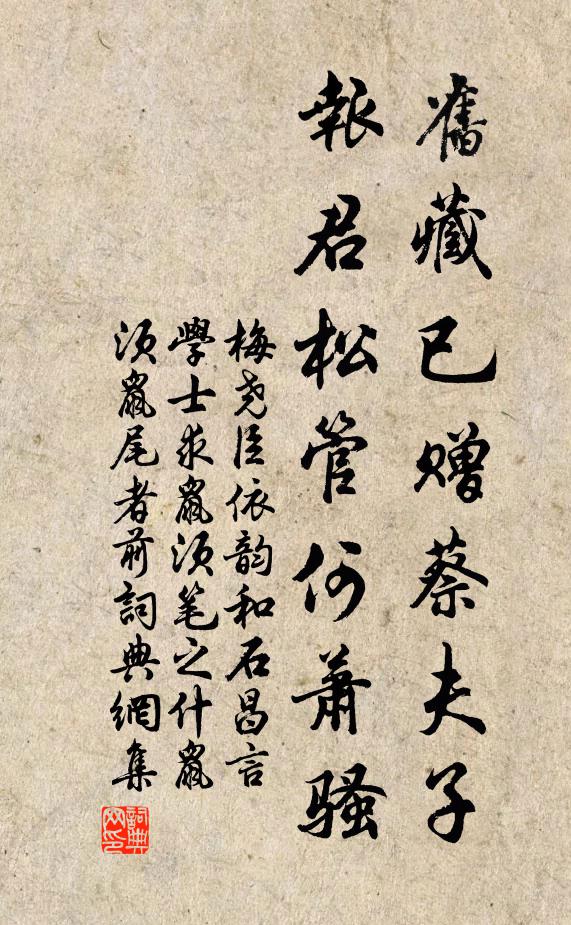 舊藏已贈蔡夫子
報君松管何蕭騷
梅尧臣依韵和石昌言
學士求鼠須笔之什鼠
須鼠尾者前詞典網集
詞典网印